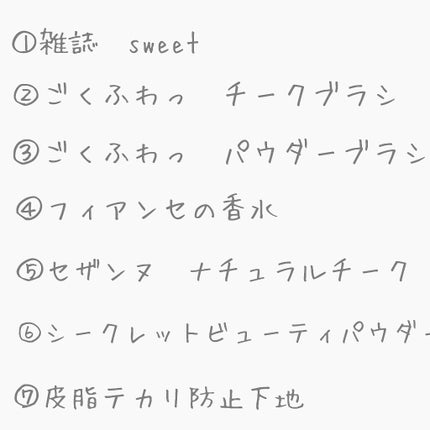 ①雑誌　sweet
②ごくふわっ　チークブラシ
③ごくふわっ　パウダーブラシ
④フィアンセの香水
⑤セザンヌ　ナチュラルチーク
⑥シークレットビューティパウダー
⑦皮脂テカリ防止下地